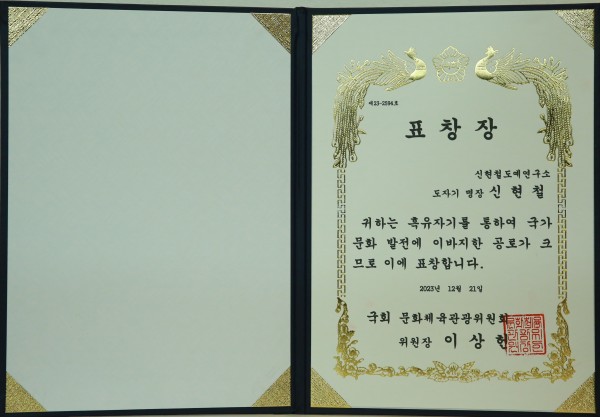 제23-2594호
표 창 장
신현철도예연구소
도자기 명장 신 현 철
귀하는 흑유자기를 통하여 국가
문화 발전에 이바지한 공로가 크
므로 이에 표창합니다.
2023년 12월 21일
국회 문화체육관광위원회
위원장 이 상 헌